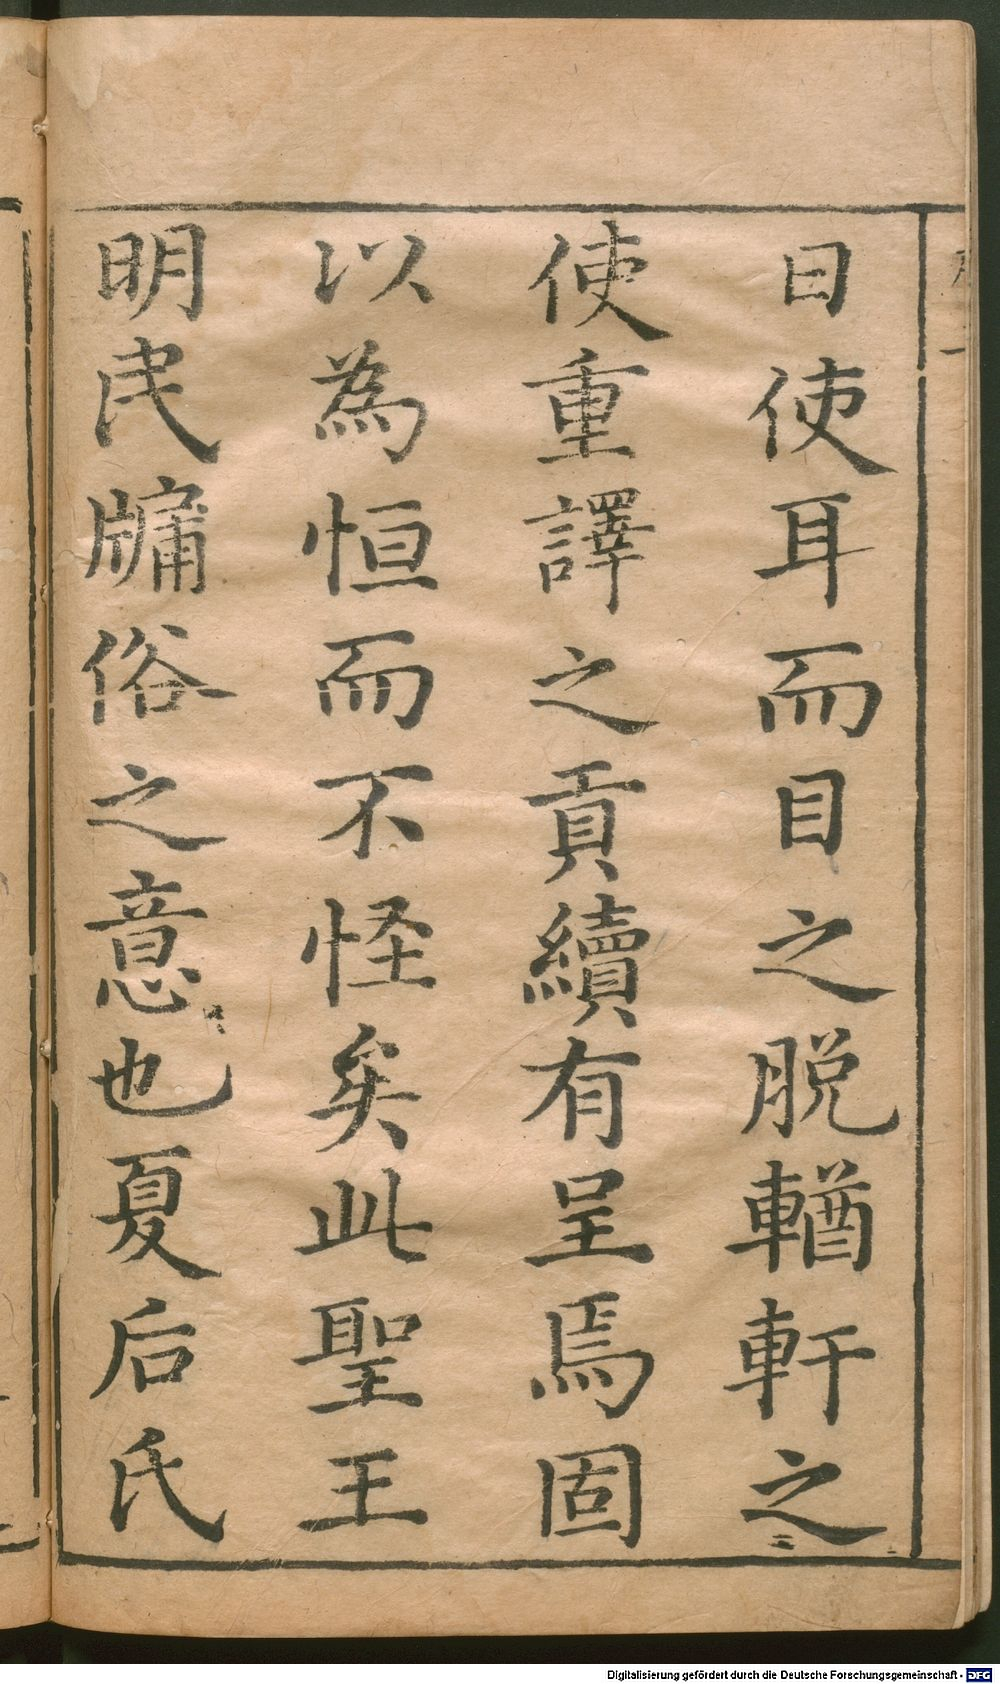 日使耳而目之脫輶軒之
使重譯之貢續有呈焉固
以為恒而不怪矣此聖王
明民牖俗之意也夏后氏
Digitalisierung gefördert durch die Deutsche Forschungsgemeinschaft - DFG